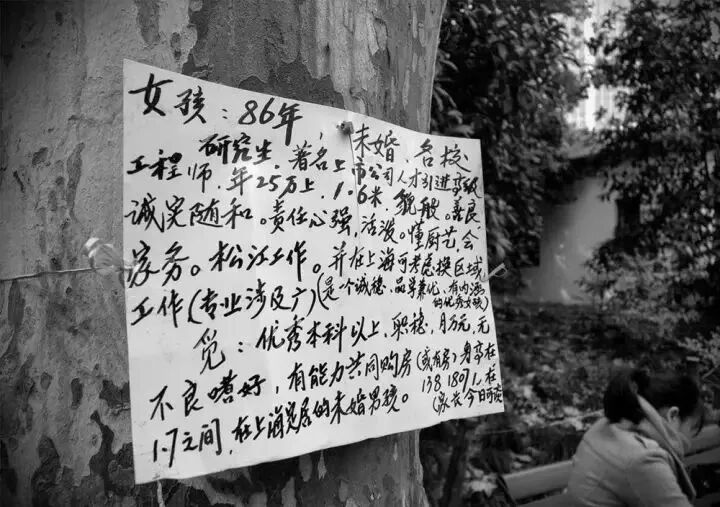 女孩：86年，未婚，名校
研究生，著名上市公司人才引进高级
工程师，年25万上，1.6米，貌般。善良
诚实随和。责任心强，活泼。懂厨艺，会
家务。松江工作。并在上海可考虑换区域
工作（专业涉及广）（是一个诚稳、品学兼优、有内涵
的优秀女孩）
觅：优秀本科以上，职稳，月万元，无
不良嗜好，有能力共同购房（或有房）身高在
1.7之间，在上海定居的未婚男孩。138 1807 1
（家长今日可谈